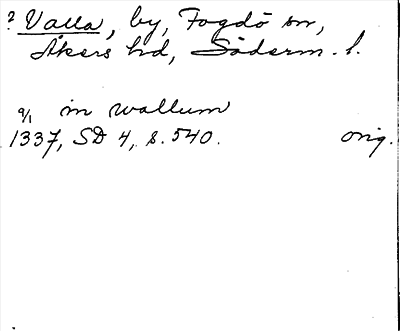 ? Valla, by, Fogdö sn,
Åkers hd, Söderm. l.
9/1 in wallum
1337, SD 4, s. 540. orig.